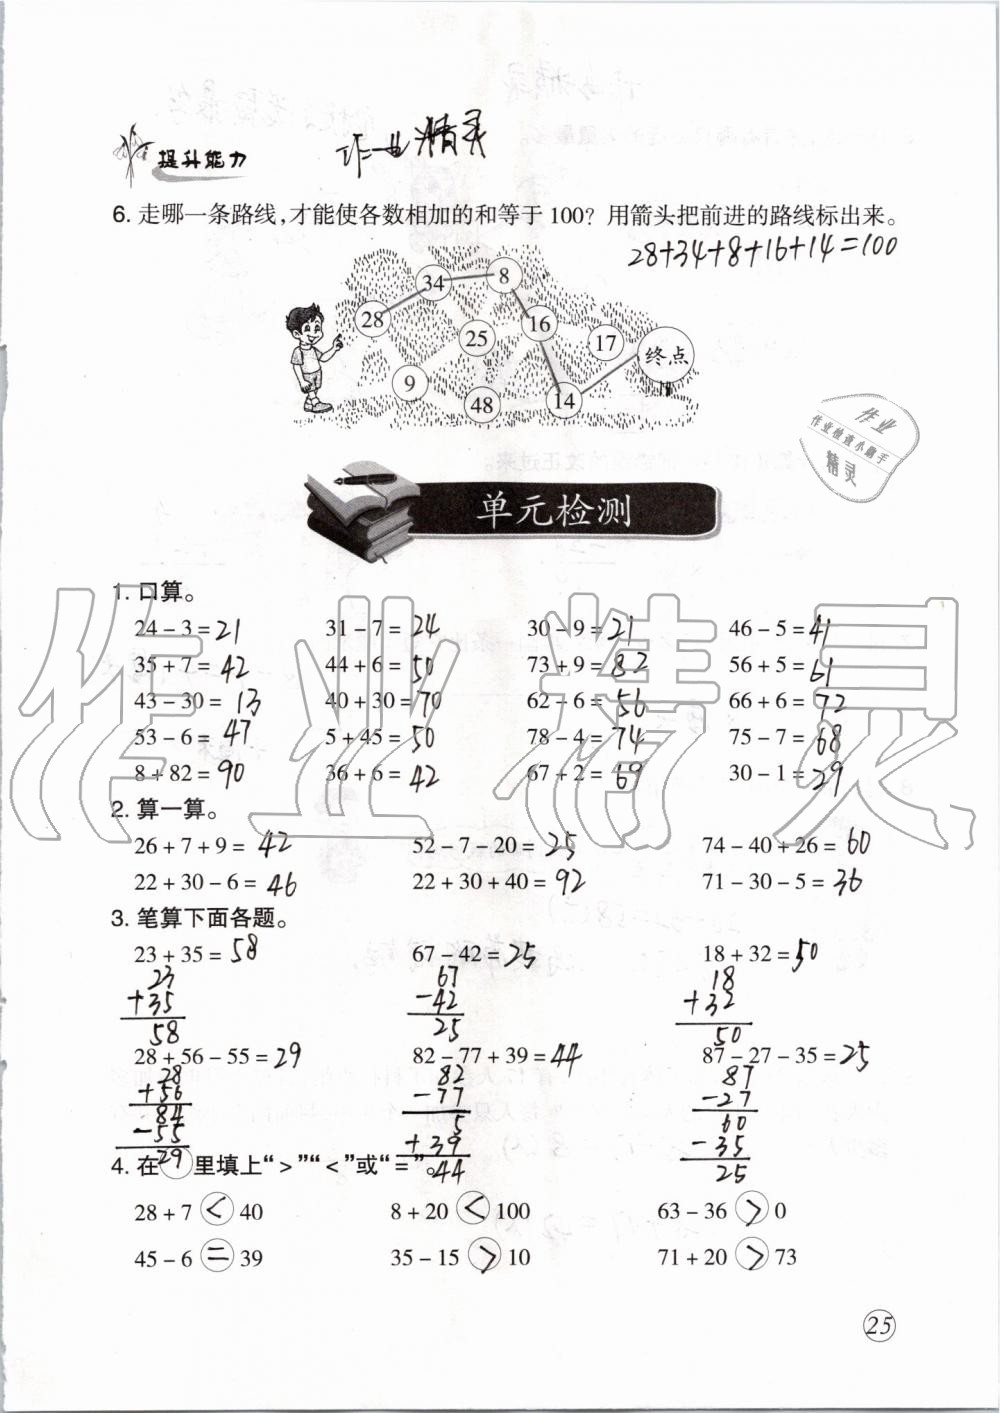 提升能力 作业精灵
6. 走哪一条路线,才能使各数相加的和等于 100? 用箭头把前进的路线标出来。
28+34+8+16+14=100
34 8
28 16
25 17 终点
9
48 14
作业
作业检查小助手
精灵
单元检测
1. 口算。
24-3=21 31-7=24 30-9=21 46-5=41
35+7=42 44+6=50 73+9=82 56+5=61
43-30=13 40+30=70 62-6=56 66+6=72
53-6=47 5+45=50 78-4=74 75-7=68
8+82=90 36+6=42 67+2=69 30-1=29
2. 算一算。
26+7+9=42 52-7-20=25 74-40+26=60
22+30-6=46 22+30+40=92 71-30-5=36
3. 笔算下面各题。
23+35=58 67-42=25 18+32=50
23 67 18
+35 -42 +32
58 25 50
28+56-55=29 82-77+39=44 87-27-35=25
28 82 87
+56 -77 -27
84 5 60
-55 +39 -35
29 44 25
4. 在○里填上“>”“<”或“=”。
28+7<40 8+20<100 63-36>0
45-6=39 35-15>10 71+20>73
25
作业精灵